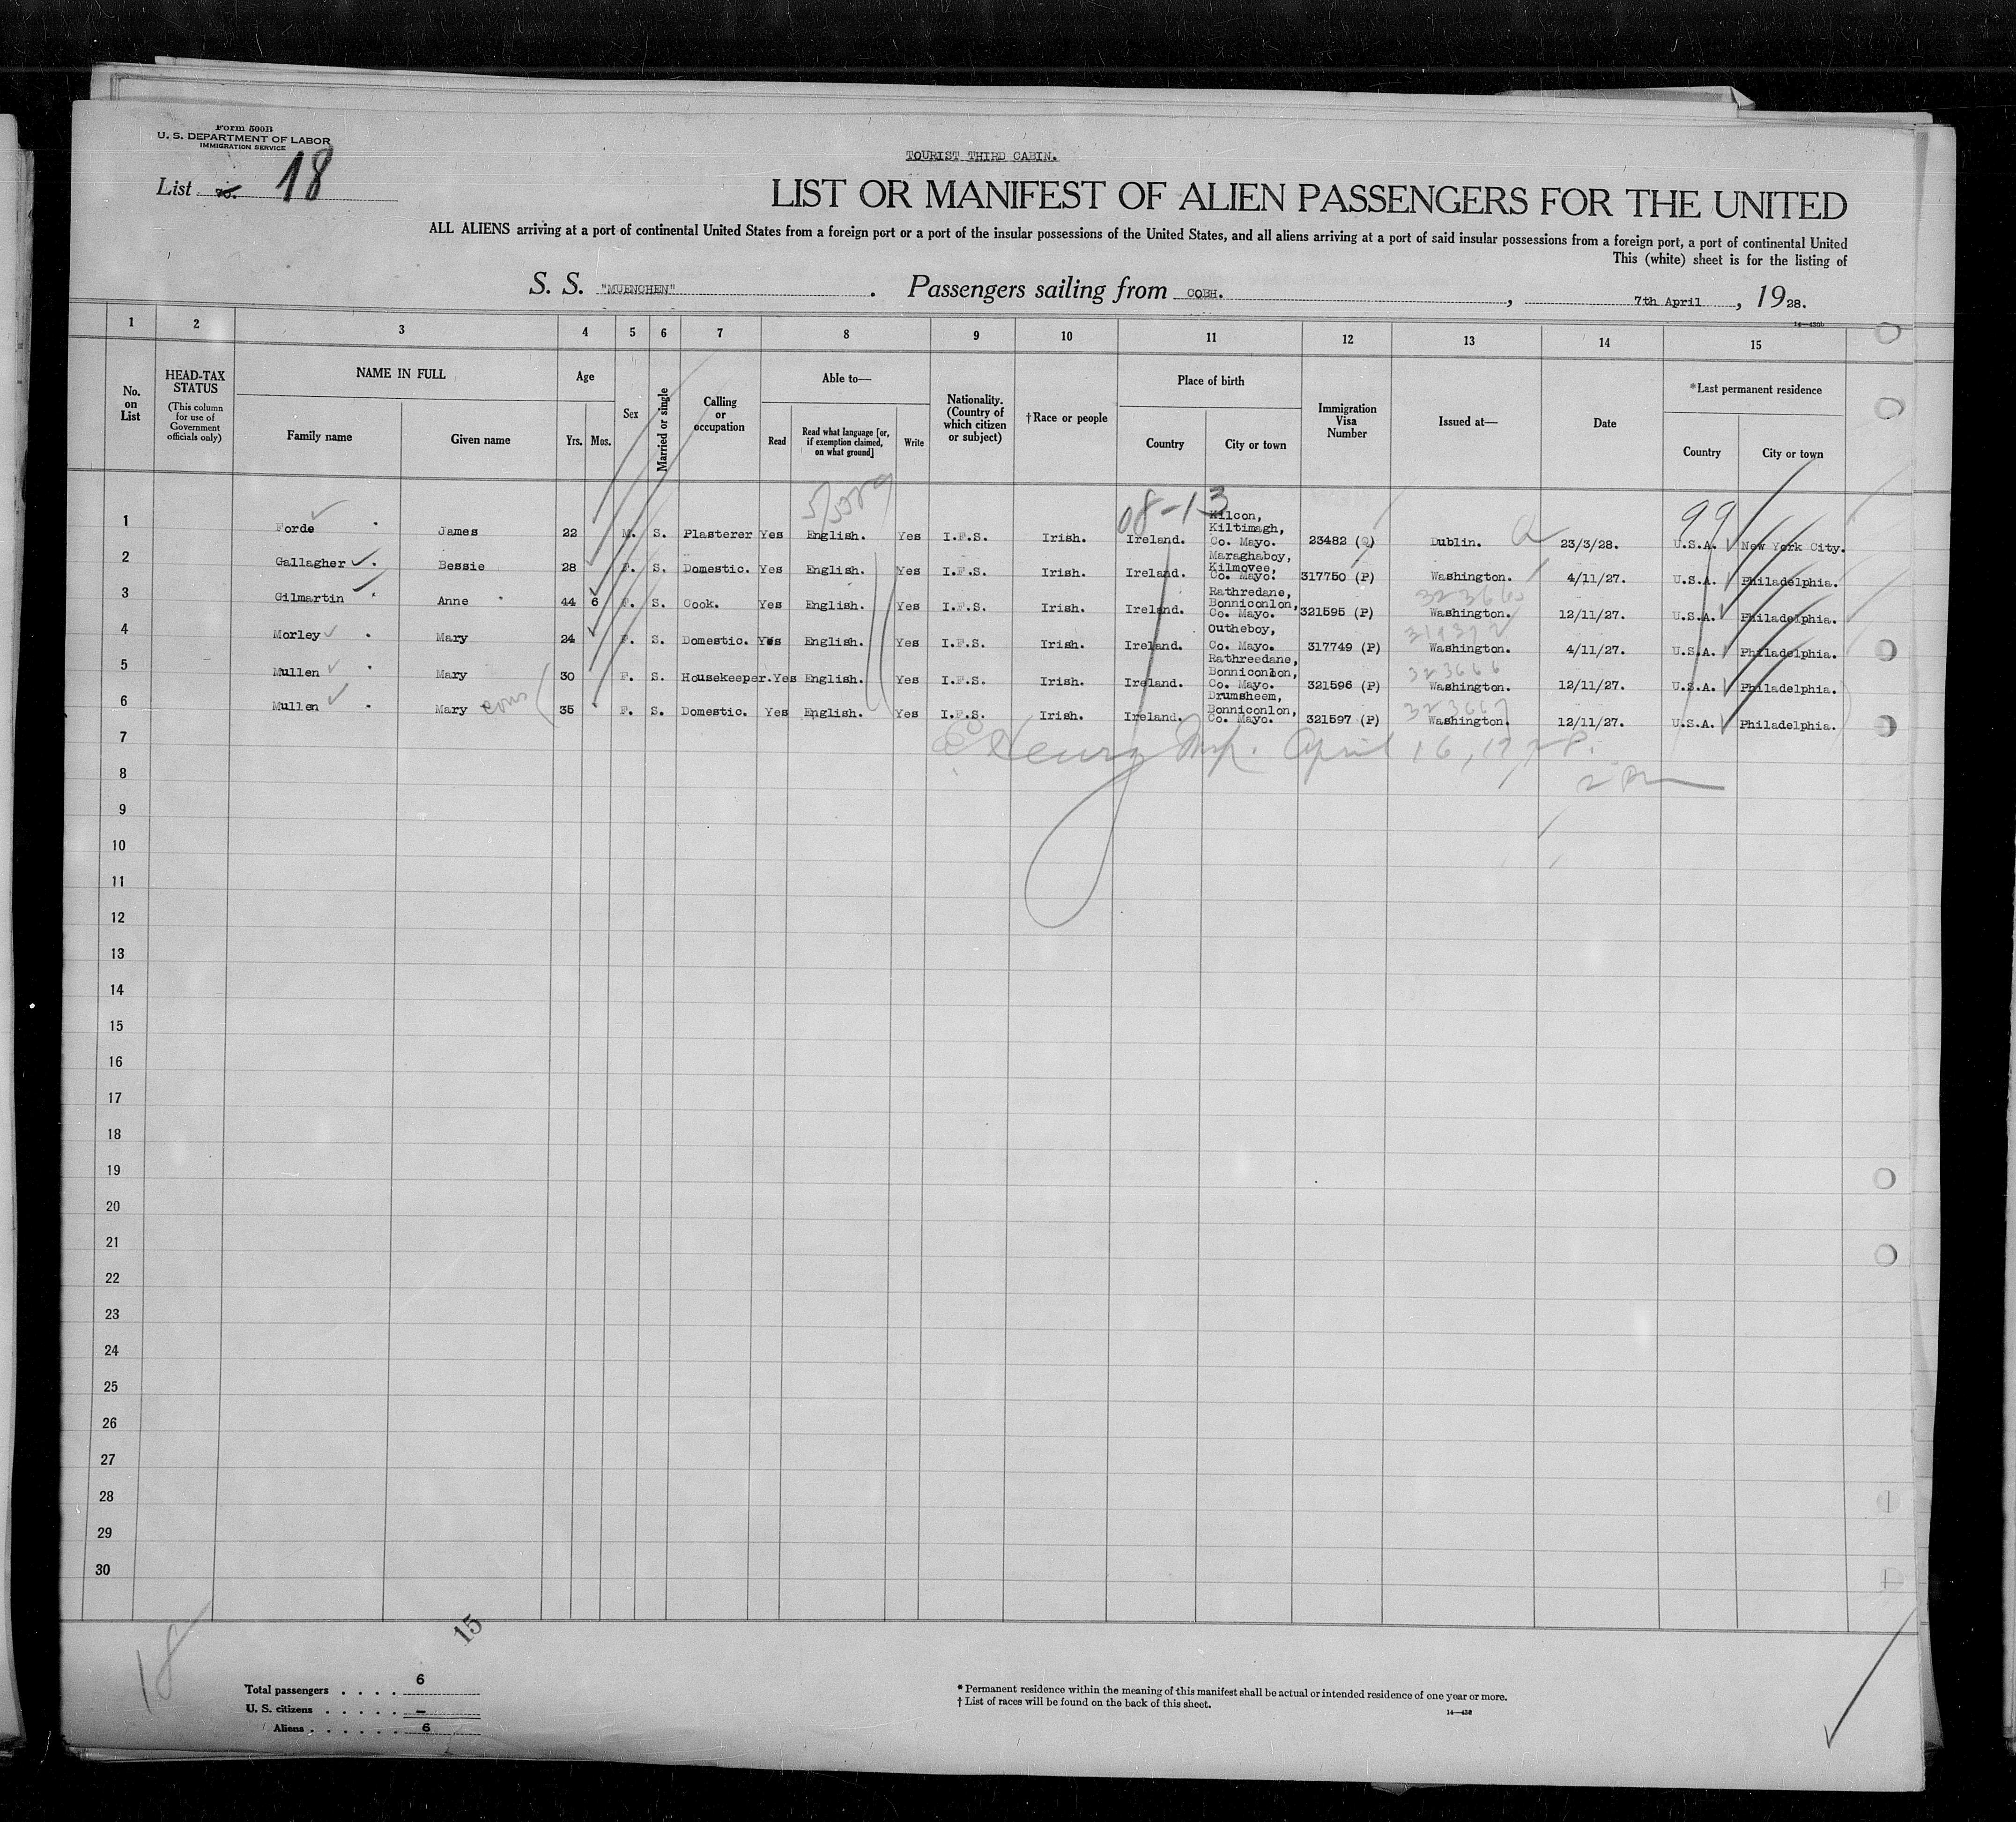 Form 500B
U. S. DEPARTMENT OF LABOR
IMMIGRATION SERVICE
List 18
TOURIST THIRD CABIN.
LIST OR MANIFEST OF ALIEN PASSENGERS FOR THE UNITED
ALL ALIENS arriving at a port of continental United States from a foreign port or a port of the insular possessions of the United States, and all aliens arriving at a port of said insular possessions from a foreign port, a port of continental United
This (white) sheet is for the listing of
S. S. "MUENCHEN" . Passengers sailing from COBH. , 7th April , 1928.
14—430b
1 2 3 4 5 6 7 8 9 10 11 12 13 14 15
No. on List
HEAD-TAX STATUS
(This column for use of Government officials only)
NAME IN FULL
Family name Given name
Age
Yrs. Mos.
Sex
Married or single
Calling or occupation
Able to—
Read Read what language [or, if exemption claimed, on what ground] Write
Nationality. (Country of which citizen or subject)
†Race or people
Place of birth
Country City or town
Immigration Visa Number
Issued at—
Date
*Last permanent residence
Country City or town
08-13 99
1 Forde James 22 M. S. Plasterer Yes English. Yes I.F.S. Irish. Ireland. Kilcon, Kiltimagh, Co. Mayo. 23482 (Q) Dublin. 23/3/28. U.S.A. New York City.
2 Gallagher Bessie 28 F. S. Domestic. Yes English. Yes I.F.S. Irish. Ireland. Maraghaboy, Kilmovee, Co. Mayo. 317750 (P) Washington. 4/11/27. U.S.A. Philadelphia.
3 Gilmartin Anne 44 6 F. S. Cook. Yes English. Yes I.F.S. Irish. Ireland. Rathredane, Bonniconlon, Co. Mayo. 321595 (P) Washington. 12/11/27. U.S.A. Philadelphia.
4 Morley Mary 24 F. S. Domestic. Yes English. Yes I.F.S. Irish. Ireland. Outheboy, Co. Mayo. 317749 (P) Washington. 4/11/27. U.S.A. Philadelphia.
323666
5 Mullen Mary 30 F. S. Housekeeper. Yes English. Yes I.F.S. Irish. Ireland. Rathreedane, Bonniconlon, Co. Mayo. 321596 (P) Washington. 12/11/27. U.S.A. Philadelphia.
323667
6 Mullen Mary 35 F. S. Domestic. Yes English. Yes I.F.S. Irish. Ireland. Drumsheem, Bonniconlon, Co. Mayo. 321597 (P) Washington. 12/11/27. U.S.A. Philadelphia.
7 Henry Insp. April 16, 1928.
8
9
10
11
12
13
14
15
16
17
18
19
20
21
22
23
24
25
26
27
28
29
30
18
15
Total passengers . . . . 6
U. S. citizens . . . . . —
Aliens . . . . . . 6
* Permanent residence within the meaning of this manifest shall be actual or intended residence of one year or more.
† List of races will be found on the back of this sheet.
14—430